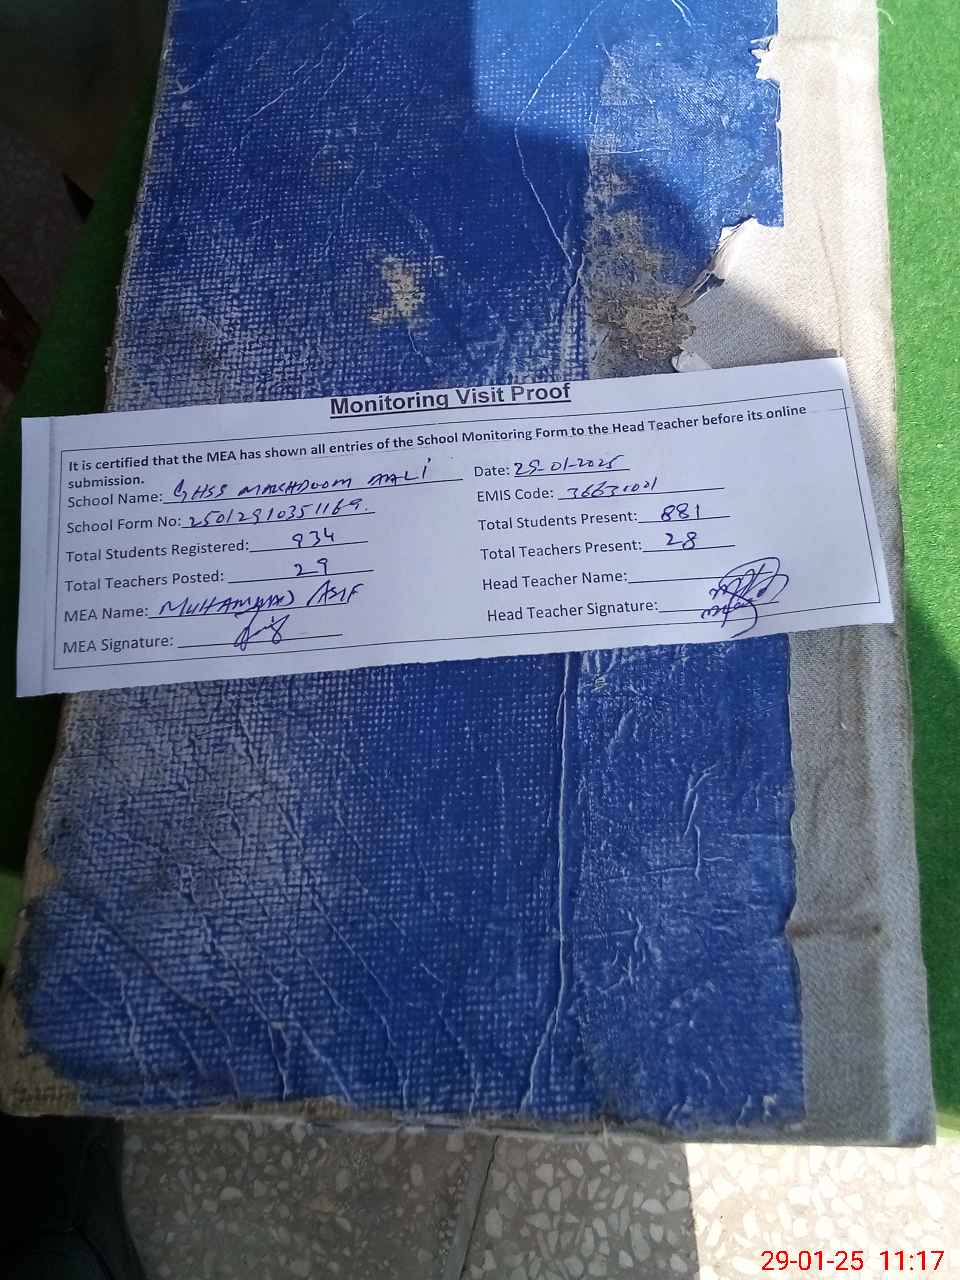 Monitoring Visit Proof
It is certified that the MEA has shown all entries of the School Monitoring Form to the Head Teacher before its online
submission.
School Name: GHSS MAKHDOOM AALI
Date: 29-01-2025
School Form No: 25012910351169.
EMIS Code: 36631001
Total Students Registered: 934
Total Students Present: 881
Total Teachers Posted: 29
Total Teachers Present: 28
MEA Name: MUHAMMAD ASIF
Head Teacher Name:
MEA Signature:
Head Teacher Signature:
29-01-25 11:17